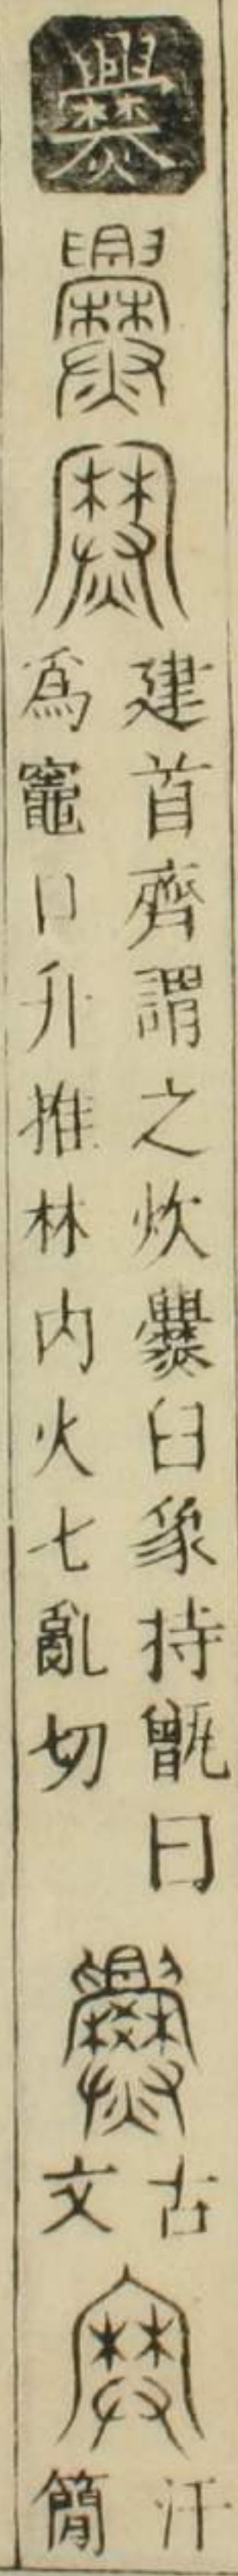 爨
爨
爨
建首齊謂之炊爨臼象持甑冂
爲竈口廾推林内火七亂切
爨
古
文
爨
汗
簡